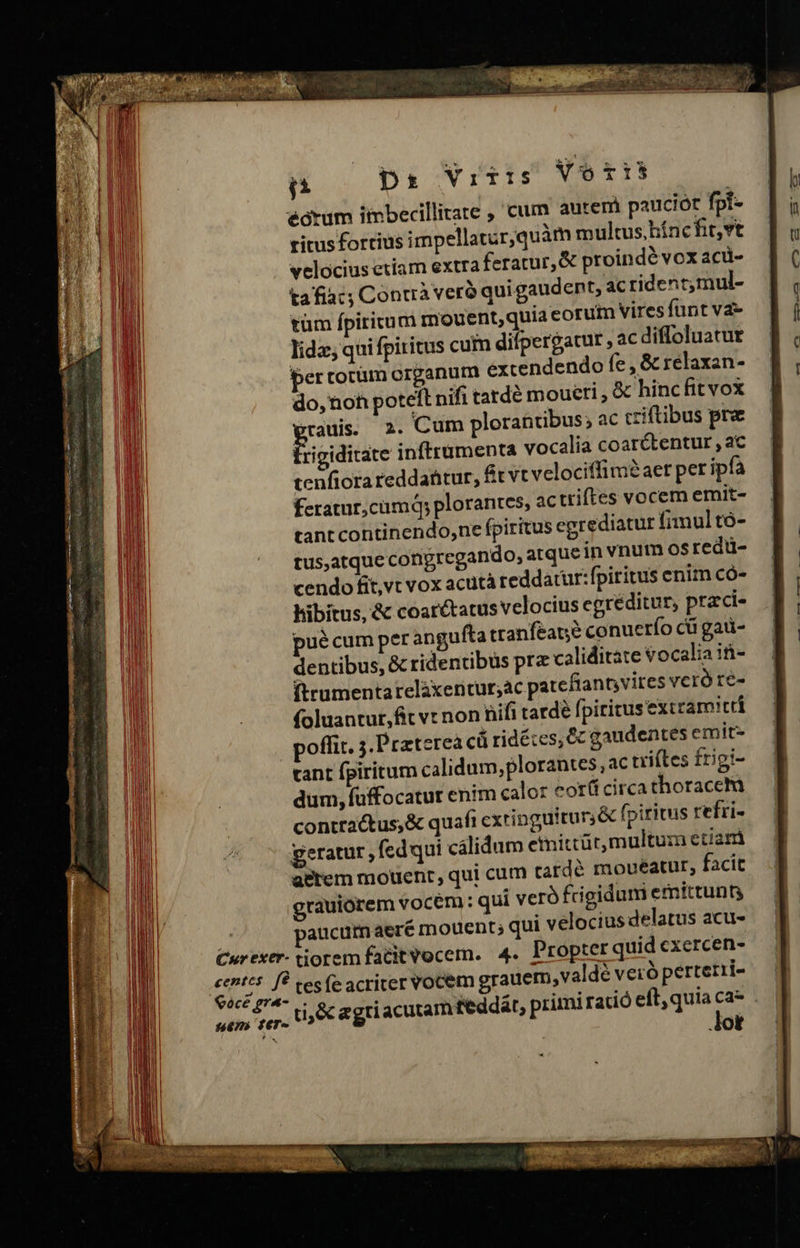 ji De Vitiis Vocis
eorum imbecillitate, cum autem paucior ſpi-
ritus fortius impellatur, quàm multus, hinc fit, vt
velocius etiam extra feratur, & proindè vox acu-
ta fiat; Contrà verò qui gaudent, ac rident, mul-
tùm ſpiritum mouent, quia eorum vires ſunt va-
lidæ, qui ſpiritus cum diſpergatur, ac diſſoluatur
per totùm organum extendendo ſe, & relaxan-
do, non poteſt niſi tardè moueri, & hinc fit vox
grauis. 2. Cum plorantibus, ac triſtibus præ
frigiditate inſtrumenta vocalia coarctentur, ac
tenſiora reddantur, fit vt velociſſimè aer per ipſa
feratur, cumq; plorantes, ac triſtes vocem emit-
tant continendo, ne ſpiritus egrediatur ſimul to-
tus, atque congregando, atque in vnum os redu-
cendo fit, vt vox acuta reddatur: ſpiritus enim co-
hibitus, & coarctatus velocius egreditur, præci-
puè cum per anguſta tranſeat; è conuerſo cũ gau-
dentibus, & ridentibus præ caliditate vocalia in-
ſtrumenta relaxentur, ac patefiant, vires verò re-
ſoluantur, fit vt non niſi tardè ſpiritus extramitti
poſſit. 3. Præterea cũ ridẽtes, & gaudentes emit-
tant ſpiritum calidum, plorantes, ac triſtes frigi-
dum, ſuffocatur enim calor eorũ circa thoracem
contractus, & quaſi extinguitur, & ſpiritus refri-
geratur, ſed qui calidum emittũt, multum etiam
aërem mouent, qui cum tardè moueatur, facit
grauiorem vocem: qui verò frigidum emittunt,
paucum aerẽ mouent, qui velocius delatus acu-
Cur exer- tiorem facit vocem. 4. Propter quid exercen-
centes ſe tes ſe acriter vocem grauem, valdè verò perterri-
voce gra- ti, & ægri acutam reddãt, primi ratio eſt, quia ca-
uem ter- lor